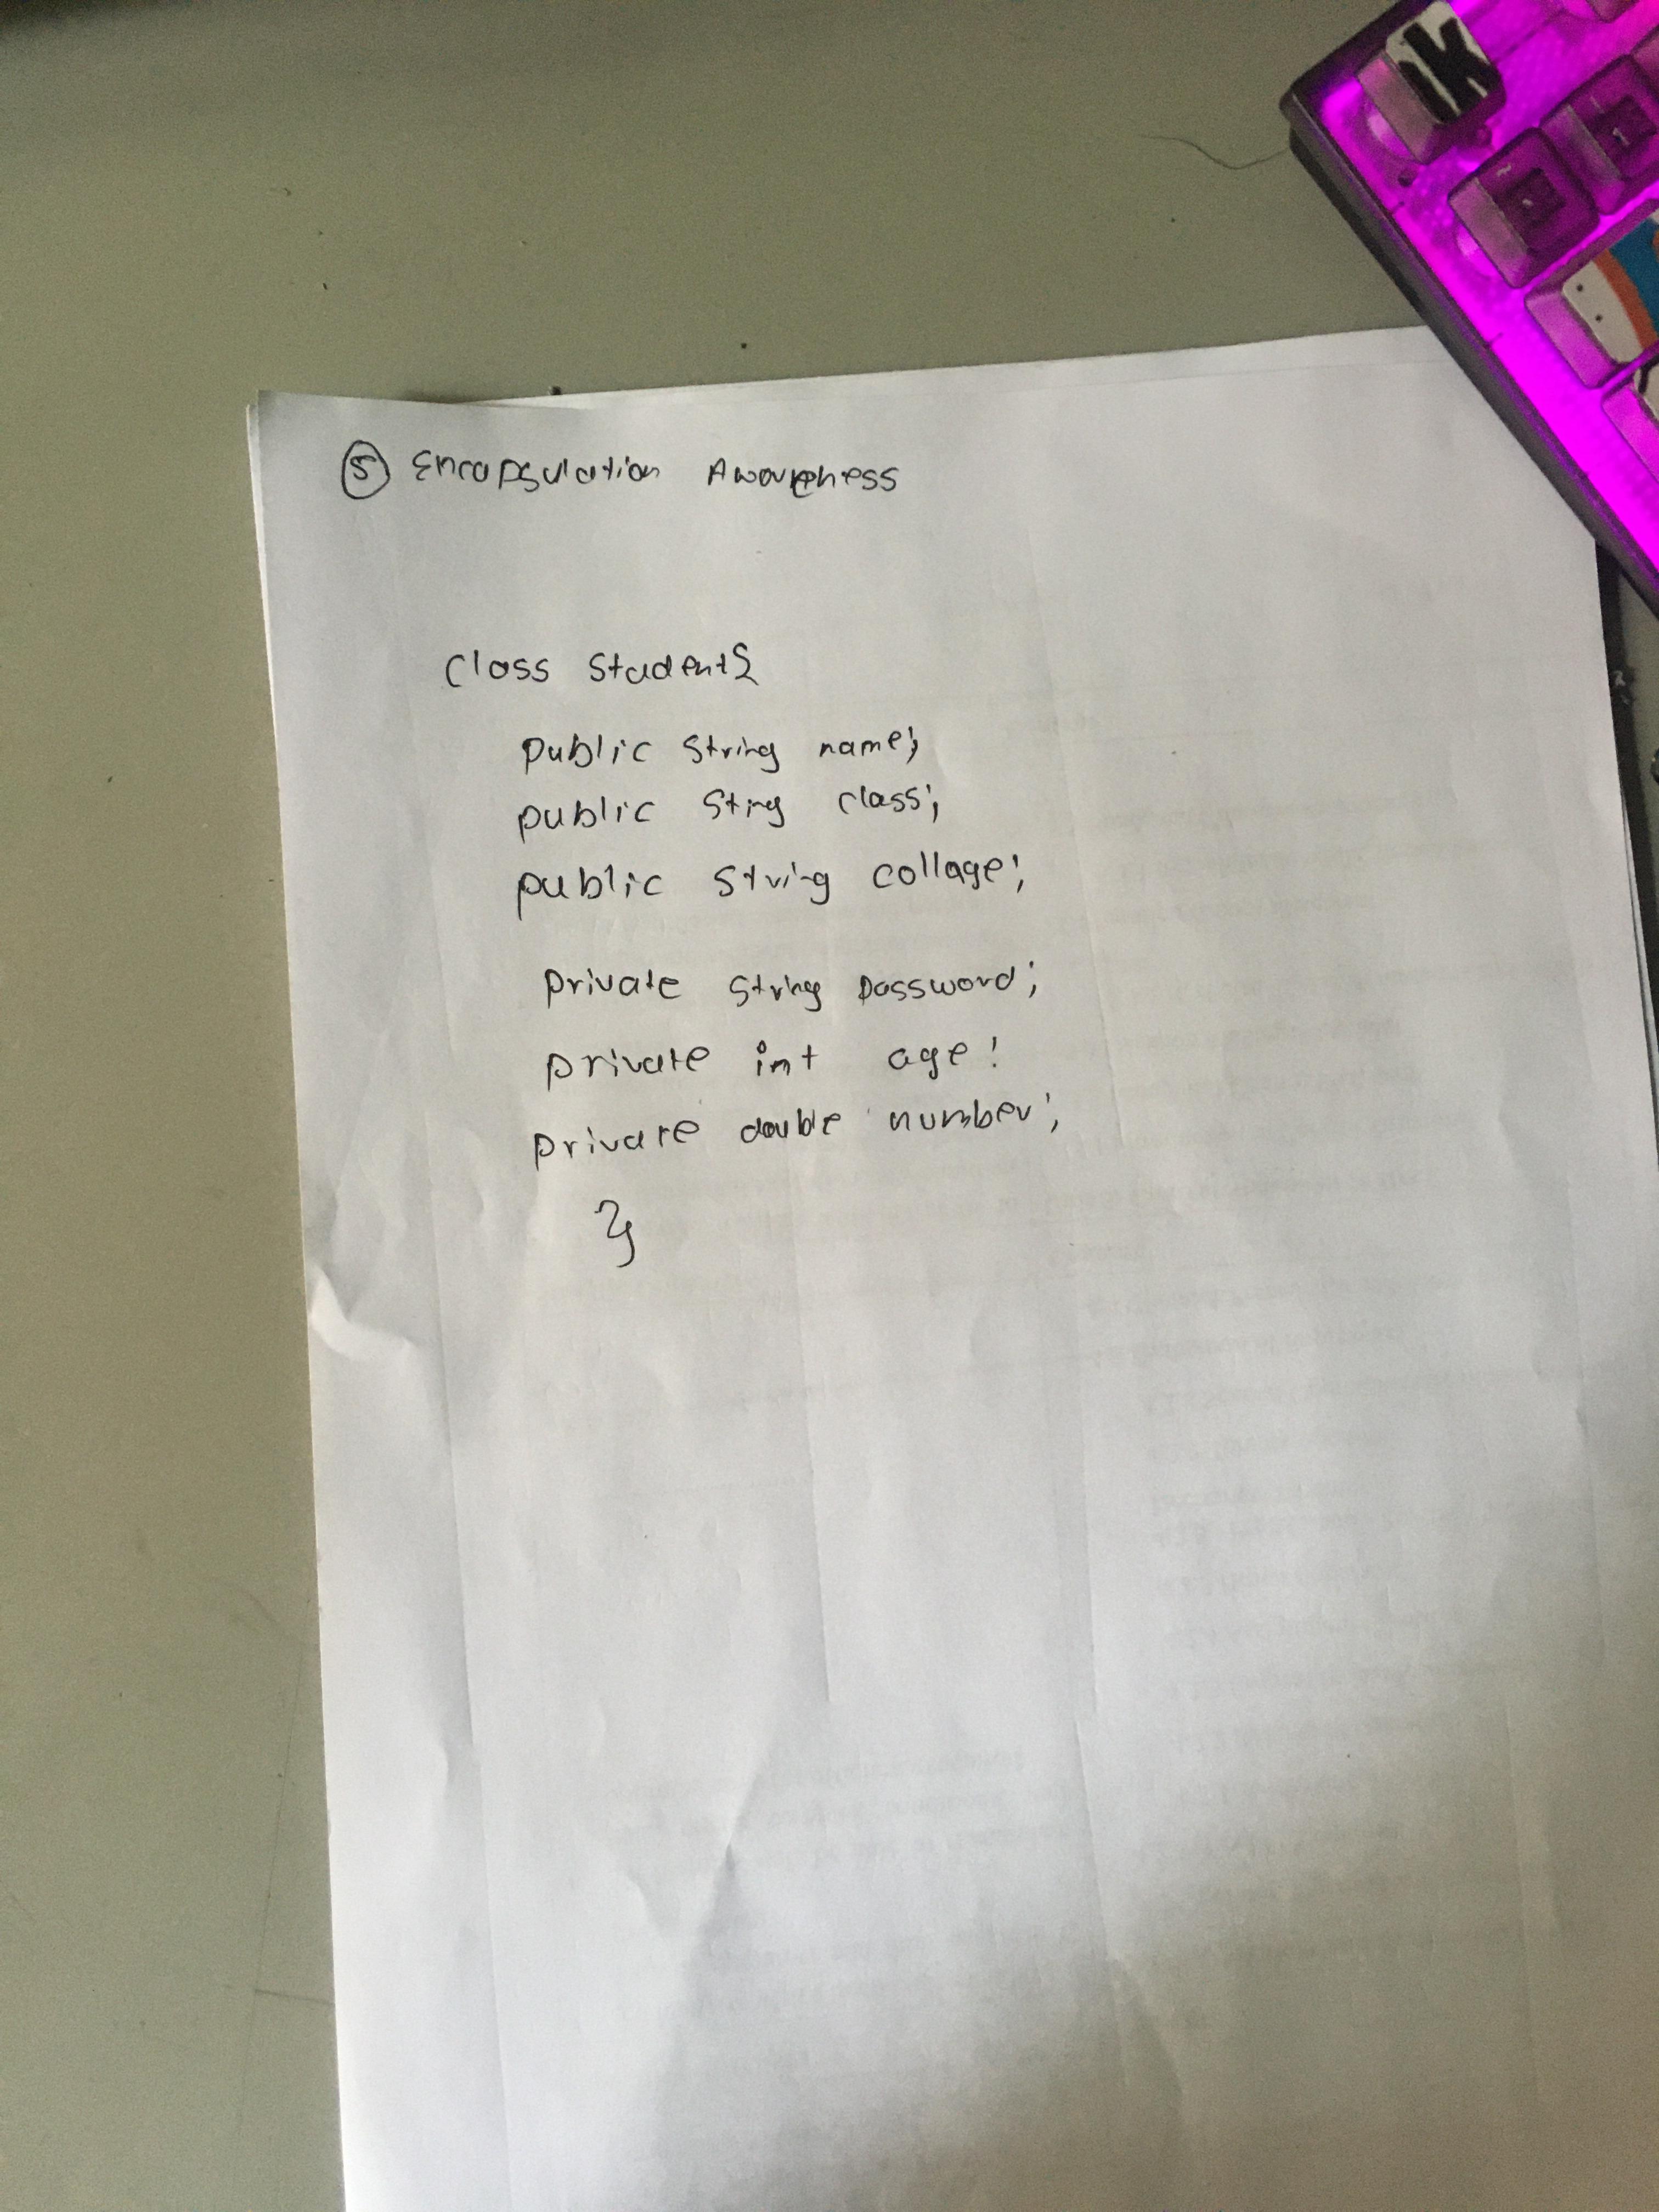 ⑤ Encapsulation Awareness
Class Student{
public String name;
public Sting class;
public String collage;
private String password;
private int age!
private double number;
}